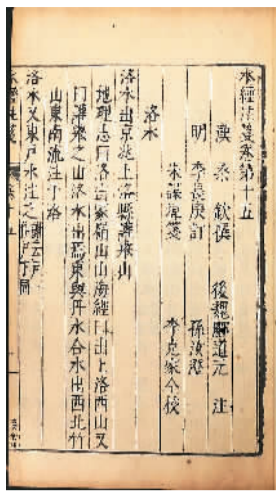 水經注箋卷第十五
漢 桑欽撰 後魏酈道元 注
明 李長庚訂 孫汝澄
朱謀㙔箋 李克家仝校
洛水
洛水出京兆上洛縣讙舉山
地理志曰洛出冢嶺山山海經曰出上洛西山又
曰讙舉之山洛水出焉東與丹水合水出西北竹
山東南流注于洛
洛水又東尸水注之